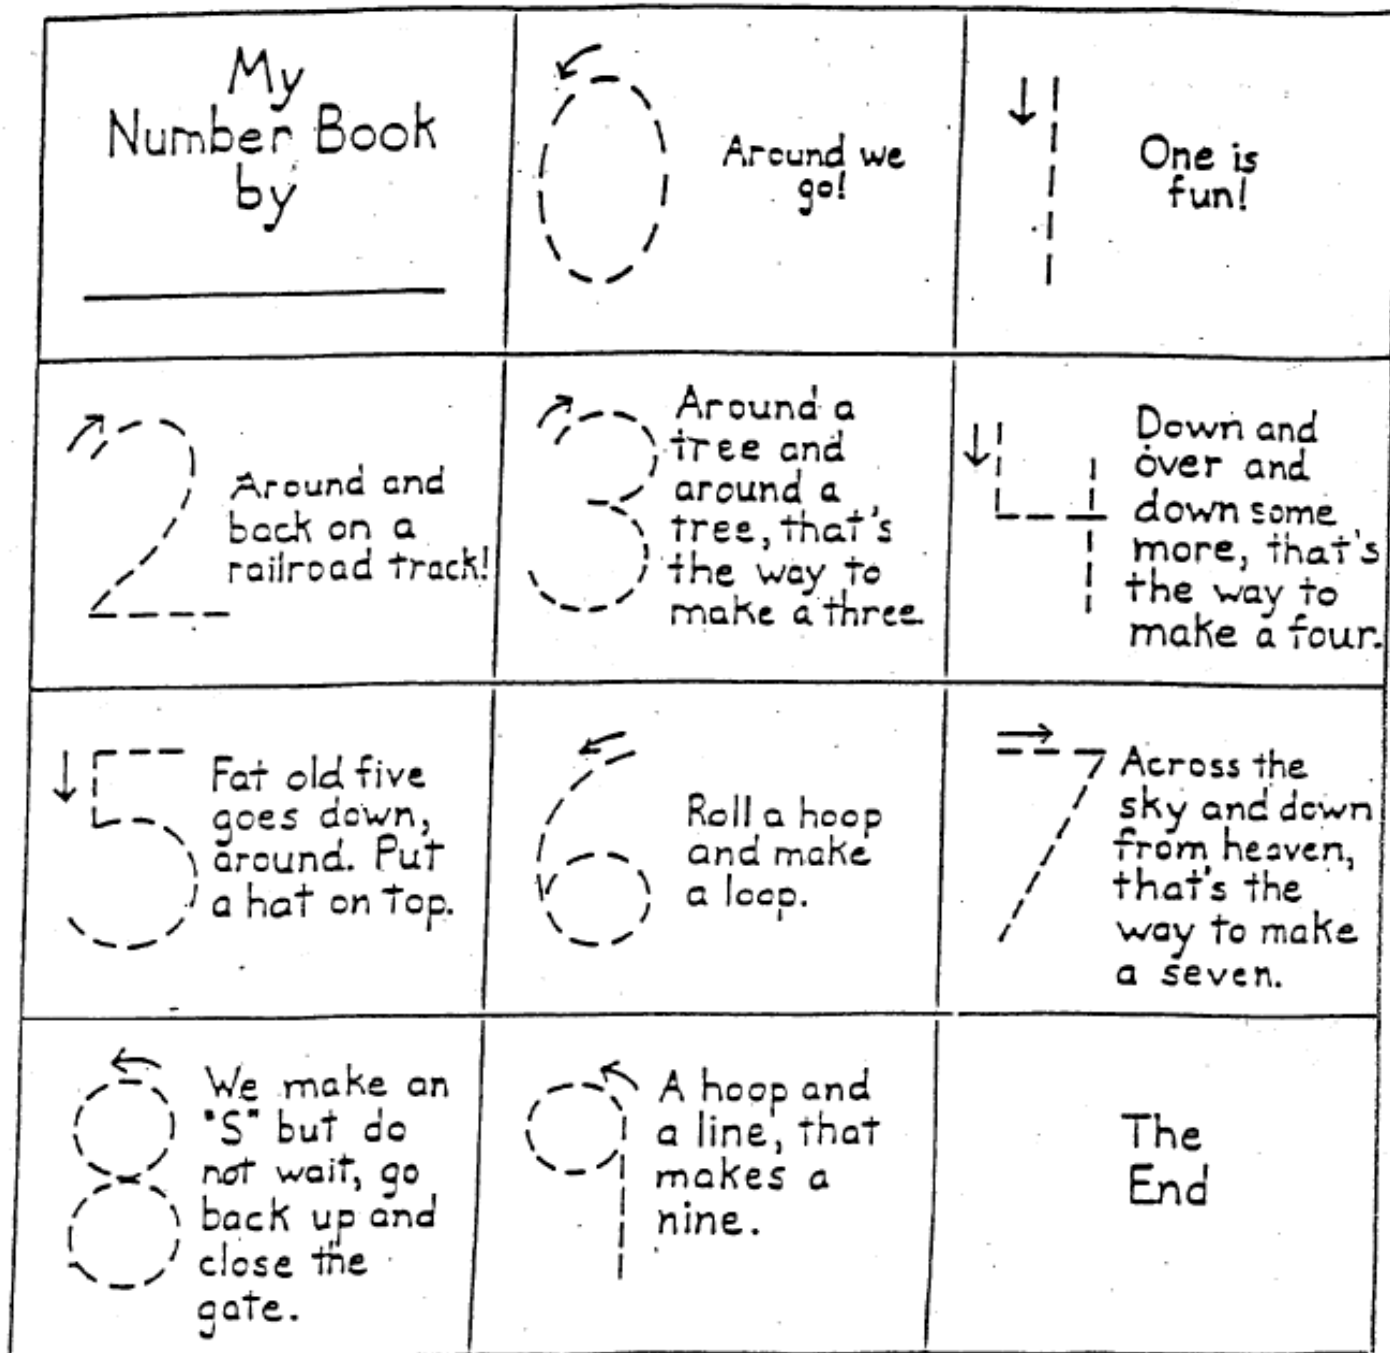 My
Number Book
by
0
Around we
go!
1
One is
fun!
2
Around and
back on a
railroad track!
3
Around a
tree and
around a
tree, that's
the way to
make a three.
4
Down and
over and
down some
more, that's
the way to
make a four.
5
Fat old five
goes down,
around. Put
a hat on top.
6
Roll a hoop
and make
a loop.
7
Across the
sky and down
from heaven,
that's the
way to make
a seven.
8
We make an
"S" but do
not wait, go
back up and
close the
gate.
9
A hoop and
a line, that
makes a
nine.
The
End